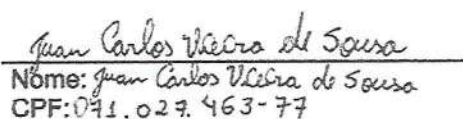 Juan Carlos Vieira de Sousa
Nome: Juan Carlos Vieira de Sousa
CPF: 071.027.463-77